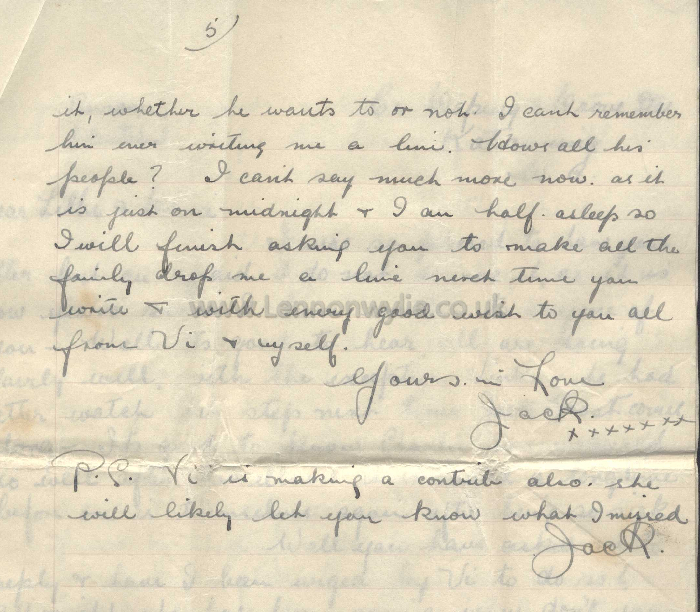 5)
it, whether he wants to or not. I cant remember
him ever writing me a line. Hows all his
people? I can't say much more now. as it
is just on midnight & I am half. asleep so
I will finish asking you to make all the
family drop me a line next time you
write & with every good wish to you all
from Vi & myself.
www.Lennonwylie.co.uk
Yours. in Love
Jack.
x x x x x x x
P.S. Vi is making a contrib also. she
will likely let you know what I missed
Jack.